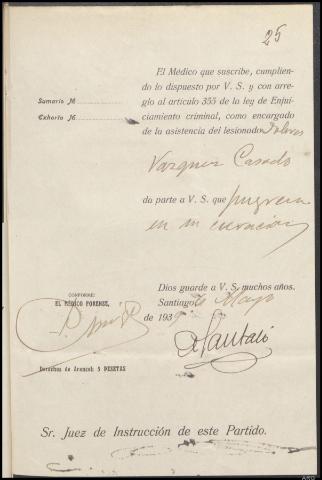 25
El Médico que suscribe, cumplien-
do lo dispuesto por V. S. y con arre-
Sumario N.
glo al artículo 355 de la ley de Enjui-
Exhorto N.
ciamiento criminal, como encargado
de la asistencia del lesionado Dolores
Vazquez Casado
da parte a V. S. que progresa
en su curación
Dios guarde a V. S. muchos años.
CONFORME:
EL MÉDICO FORENSE,
Santiago Mayo
de 1939
Derechos de Arancel: 5 PESETAS
Sr. Juez de Instrucción de este Partido.